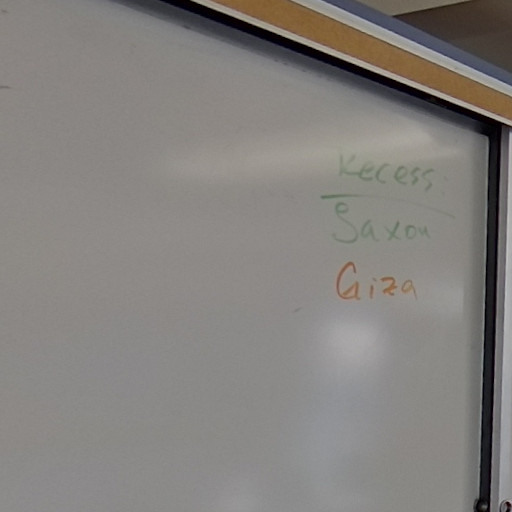 Recess:
Saxon
Giza